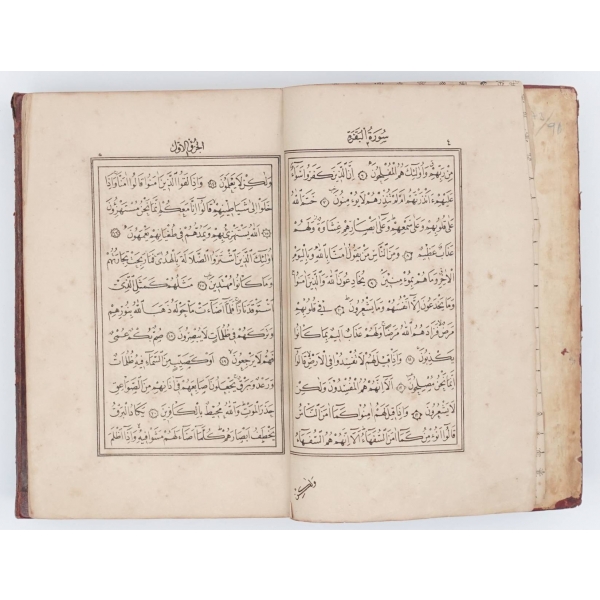 ٤
سورة البقرة
من ربهم واولئك هم المفلحون ان الذين كفروا سواء
عليهم ءانذرتهم ام لم تنذرهم لا يؤمنون ختم الله
على قلوبهم وعلى سمعهم وعلى ابصارهم غشاوة ولهم
عذاب عظيم ومن الناس من يقول امنا بالله وباليوم
الاخر وما هم بمؤمنين يخادعون الله والذين امنوا
وما يخدعون الا انفسهم وما يشعرون في قلوبهم
مرض فزادهم الله مرضا ولهم عذاب اليم بما كانوا
يكذبون واذا قيل لهم لا تفسدوا في الارض قالوا
انما نحن مصلحون الا انهم هم المفسدون ولكن
لا يشعرون واذا قيل لهم امنوا كما امن الناس
قالوا انؤمن كما امن السفهاء الا انهم هم السفهاء
ولكن
الجزء الاول
٥
ولكن لا يعلمون واذا لقوا الذين امنوا قالوا امنا واذا
خلوا الى شياطينهم قالوا انا معكم انما نحن مستهزؤن
الله يستهزئ بهم ويمدهم في طغيانهم يعمهون
اولئك الذين اشتروا الضلالة بالهدى فما ربحت تجارتهم
وما كانوا مهتدين مثلهم كمثل الذي
استوقد نارا فلما اضاءت ما حوله ذهب الله بنورهم
وتركهم في ظلمات لا يبصرون صم بكم عمي
فهم لا يرجعون او كصيب من السماء فيه ظلمات
ورعد وبرق يجعلون اصابعهم في اذانهم من الصواعق
حذر الموت والله محيط بالكافرين يكاد البرق
يخطف ابصارهم كلما اضاء لهم مشوا فيه واذا اظلم